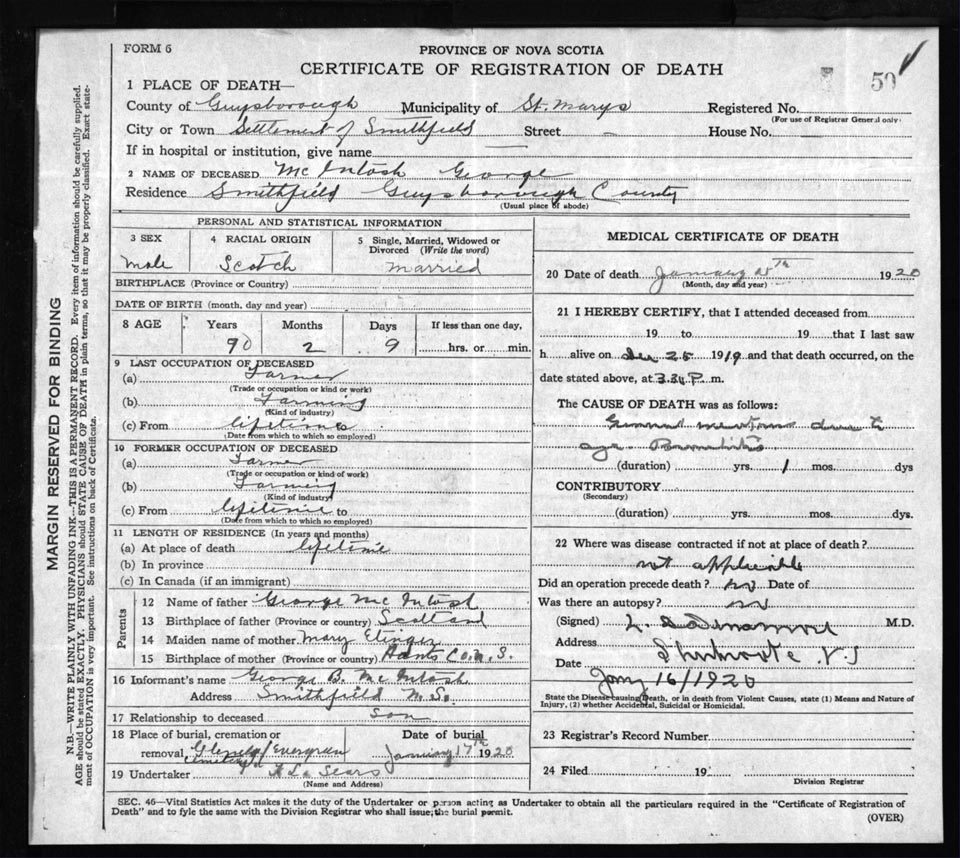 FORM 6
PROVINCE OF NOVA SCOTIA
CERTIFICATE OF REGISTRATION OF DEATH
50
1 PLACE OF DEATH—
County of Guysborough Municipality of St. Marys Registered No.
(For use of Registrar General only)
City or Town Settlement of Smithfield Street — House No. —
If in hospital or institution, give name —
2 NAME OF DECEASED McIntosh George
Residence Smithfield Guysborough County
(Usual place of abode)
PERSONAL AND STATISTICAL INFORMATION
3 SEX 4 RACIAL ORIGIN 5 Single, Married, Widowed or Divorced (Write the word)
Male Scotch Married
BIRTHPLACE (Province or Country)
DATE OF BIRTH (month, day and year)
8 AGE Years Months Days If less than one day,
90 2 9 hrs. or min.
9 LAST OCCUPATION OF DECEASED
(a) Farmer
(Trade or occupation or kind or work)
(b) Farming
(Kind of industry)
(c) From lifetime
(Date from which to which so employed)
10 FORMER OCCUPATION OF DECEASED
(a) Farmer
(Trade or occupation or kind of work)
(b) Farming
(Kind of industry)
(c) From lifetime to
(Date from which to which so employed)
11 LENGTH OF RESIDENCE (In years and months)
(a) At place of death lifetime
(b) In province
(c) In Canada (if an immigrant)
Parents
12 Name of father George McIntosh
13 Birthplace of father (Province or country) Scotland
14 Maiden name of mother Mary
15 Birthplace of mother (Province or country) Hants Co. N.S.
16 Informant's name George B. McIntosh
Address Smithfield N.S.
17 Relationship to deceased Son
18 Place of burial, cremation or removal, Glenelg / Evergreen Cemetery
Date of burial January 17th 1920
19 Undertaker Sears
(Name and Address)
MEDICAL CERTIFICATE OF DEATH
20 Date of death January th 1920
(Month, day and year)
21 I HEREBY CERTIFY, that I attended deceased from
19 to 19 that I last saw
h alive on Dec 25 1919 and that death occurred, on the
date stated above, at P. m.
The CAUSE OF DEATH was as follows:
General due to
age Bronchitis
(duration) yrs. 1 mos. dys
CONTRIBUTORY
(Secondary)
(duration) yrs. mos. dys.
22 Where was disease contracted if not at place of death?
not applicable
Did an operation precede death? no Date of
Was there an autopsy? no
(Signed) M.D.
Address Sherbrooke N.S
Date Jany 16/1920
State the Disease causing Death, or in death from Violent Causes, state (1) Means and Nature of
Injury, (2) whether Accidental, Suicidal or Homicidal.
23 Registrar's Record Number
24 Filed 19
Division Registrar
SEC. 46—Vital Statistics Act makes it the duty of the Undertaker or person acting as Undertaker to obtain all the particulars required in the "Certificate of Registration of
Death" and to fyle the same with the Division Registrar who shall issue the burial permit.
(OVER)
MARGIN RESERVED FOR BINDING
N.B.—WRITE PLAINLY WITH UNFADING INK—THIS IS A PERMANENT RECORD. Every item of information should be carefully supplied.
AGE should be stated EXACTLY. PHYSICIANS should STATE CAUSE OF DEATH in plain terms, so that it may be properly classified. Exact state-
ment of OCCUPATION is very important. See instructions on back of Certificate.